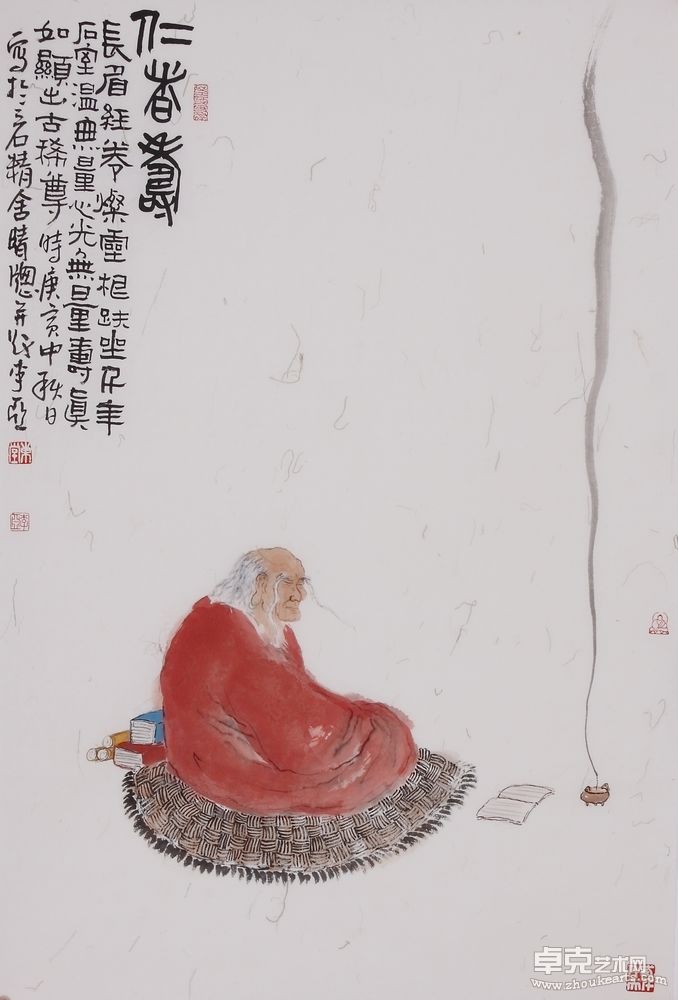 仁者壽
長眉經卷燦靈根趺坐千年
石室温無量心光無量壽真
如顯出古稀尊時庚寅中秋日
寫於三石精舍晴窗并題李亞
卓克艺术网
www.zhoukearts.com